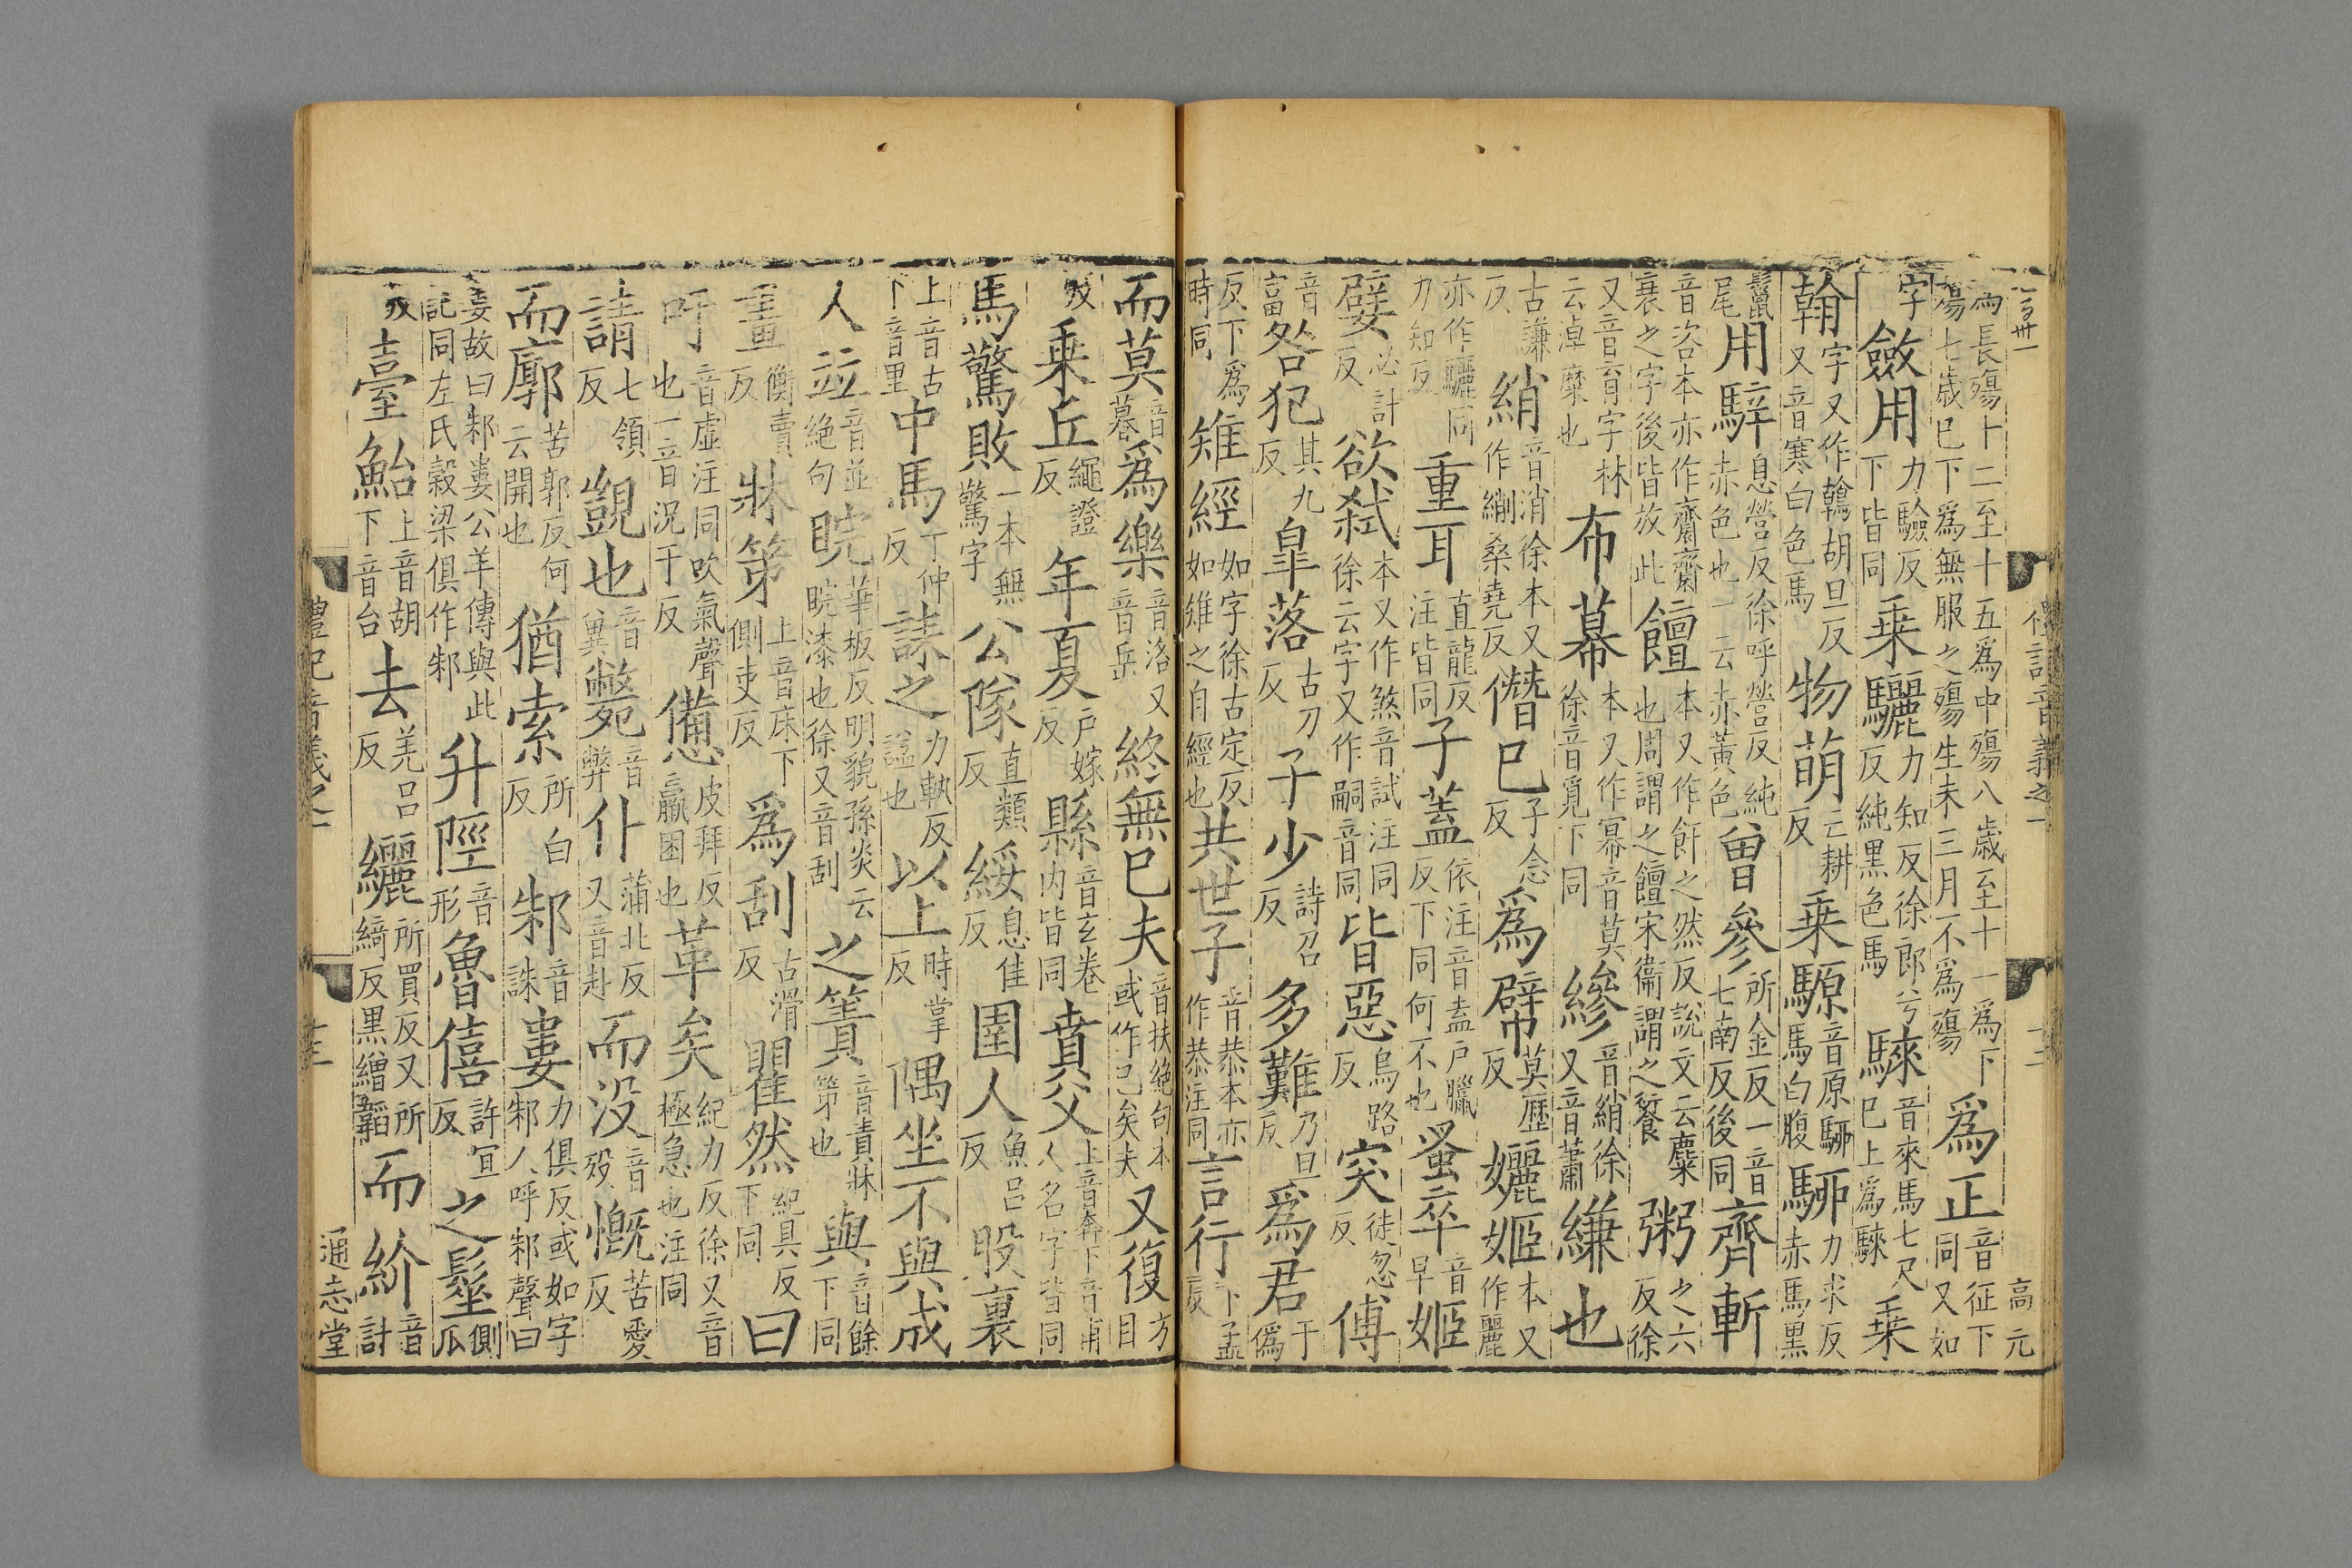 為長殤十二至十五為中殤八歲至十一為下殤七歲已下為無服之殤生未三月不為殤 為正音征下同又如
字 斂用力驗反下皆同 乗驪力知反徐郎兮反純黒色馬 騋音來馬七尺已上為騋 乗
翰字又作鶾胡旦反又音寒白色馬 物萌亡耕反 乗騵音原駵馬白腹 駵力求反赤馬黒
鬛尾 用騂息營反徐呼營反純赤色也一云赤黃色 曾參所金反一音七南反後同 齊斬
音咨本亦作齋齋衰之字後皆放此 饘本又作飦之然反說文云麋也周謂之饘宋衞謂之餰 粥之六反徐
又音育字林云淖糜也 布幕本又作幂音莫徐音覓下同 縿音綃徐又音蕭 縑也
古謙反 綃音消徐本又作繝桑堯反 僭已子念反 為幦莫歷反 孋姬本又作麗
亦作驪同力知反 重耳直龍反注皆同 子蓋依注音盍户臘反下同何不也 蚤卒音早 姬
嬖必計反 欲弒本又作煞音試注同徐云字又作嗣音同 皆惡烏路反 突徒忽反 傅
音富 咎犯其九反 臯落古刀反 子少詩召反 多難乃旦反 為君于僞
反下為時同 雉經如字徐古定反如雉之自經也 共世子音恭本亦作恭注同 言行下孟反
而莫音暮 為樂音洛又音岳 終無已夫音扶絕句本或作已矣夫 又復方目
反 乗丘繩證反 年夏户嫁反 縣音玄卷内皆同 賁父上音奔下音甫人名字皆同
馬驚敗一本無驚字 公隊直類反 綏息佳反 圉人魚吕反 股裏
上音古下音里 中馬丁仲反 誄之力軌反諡也 以上時掌反 隅坐不與成
人竝音並絕句 睆華板反明貌孫炎云睆漆也徐又音刮 之簀音責牀第也 與音餘下同
畫衡賣反 牀第上音床下側吏反 為刮古滑反 瞿然紀具反下同 曰
吁音虛注同吹氣聲也一音況于反 憊皮拜反羸困也 革矣紀力反徐又音極急也注同
請七領反 覬也音冀 斃音弊 仆蒲北反又音赴 而没音殁 慨苦愛反
而廓苦郭反何云開也 猶索所白反 邾音誅 婁力俱反或如字邾人呼邾聲曰
婁故曰邾婁公羊傳與此記同左氏榖梁俱作邾 升陘音形 魯僖許宜反 之髽側瓜
反 臺鮐上音胡下音台 去羌吕反 纚所買反又所綺反黒繒韜 而紒音計
禮記音義之一
十二
高元
通志堂